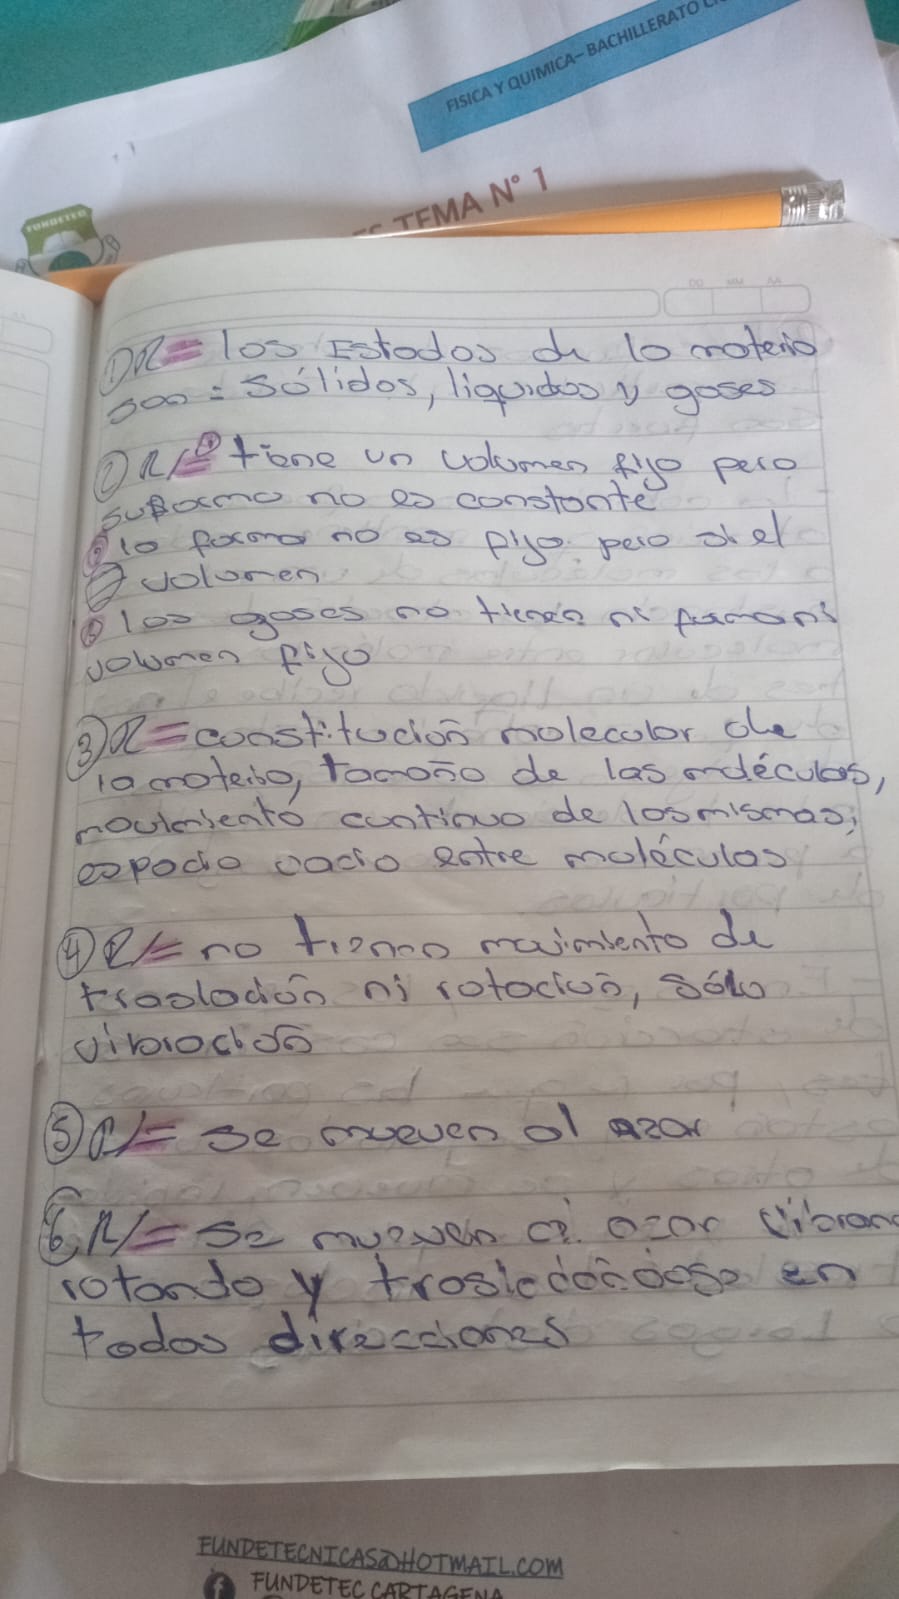 FISICA Y QUIMICA- BACHILLERATO
TEMA N° 1
FUNDETEC
DD MM AA
① R= los Estados de la materia
son = Sólidos, liquidos y gases
② R/= tiene un volumen fijo pero
su forma no es constante
la forma no es fijo pero si el
volumen
los gases no tienen ni forma ni
volumen fijo
③ R= constitución molecular de
la materia, tamaño de las moléculas,
movimiento continuo de las mismas,
espacio vacio entre moléculas
④ R/= no tienen movimiento de
traslación ni rotación, sólo
vibración
⑤ R/= se mueven al azar
⑥ R/= se mueven al azar vibran
rotando y trasladandose en
todas direcciones
FUNDETECNICAS@HOTMAIL.COM
FUNDETEC CARTAGENA